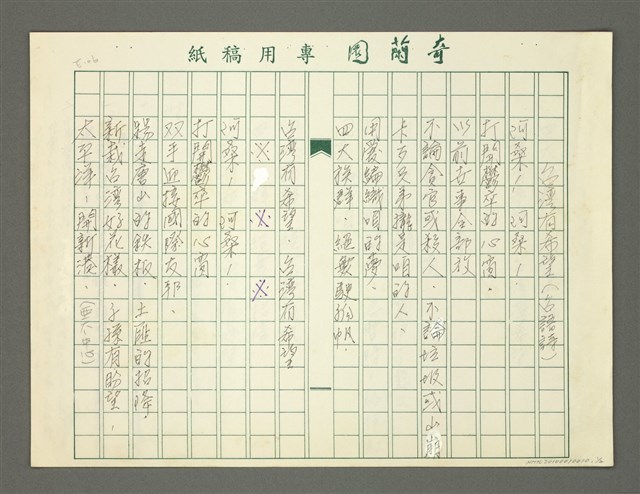 奇蘭園專用稿紙
台灣有希望（台語詩）
阿桑！阿桑！
打開鬱卒的心窗，
以前古事全部放
不論舍官或移人，不論垃圾或山崩
卡多兄弟攏是咱的人，
用愛編織咱的夢，
四大族群，絕無駛狗帆，
台灣有希望，台灣有希望
※ ※ ※
阿桑！阿桑！
打開鬱卒的心窗
双手迎接國際友邦，
踢走唐山的鉄板，土匪的招降，
新栽台灣好花樣，子孫有盼望，
太平洋，開新港，
E-06